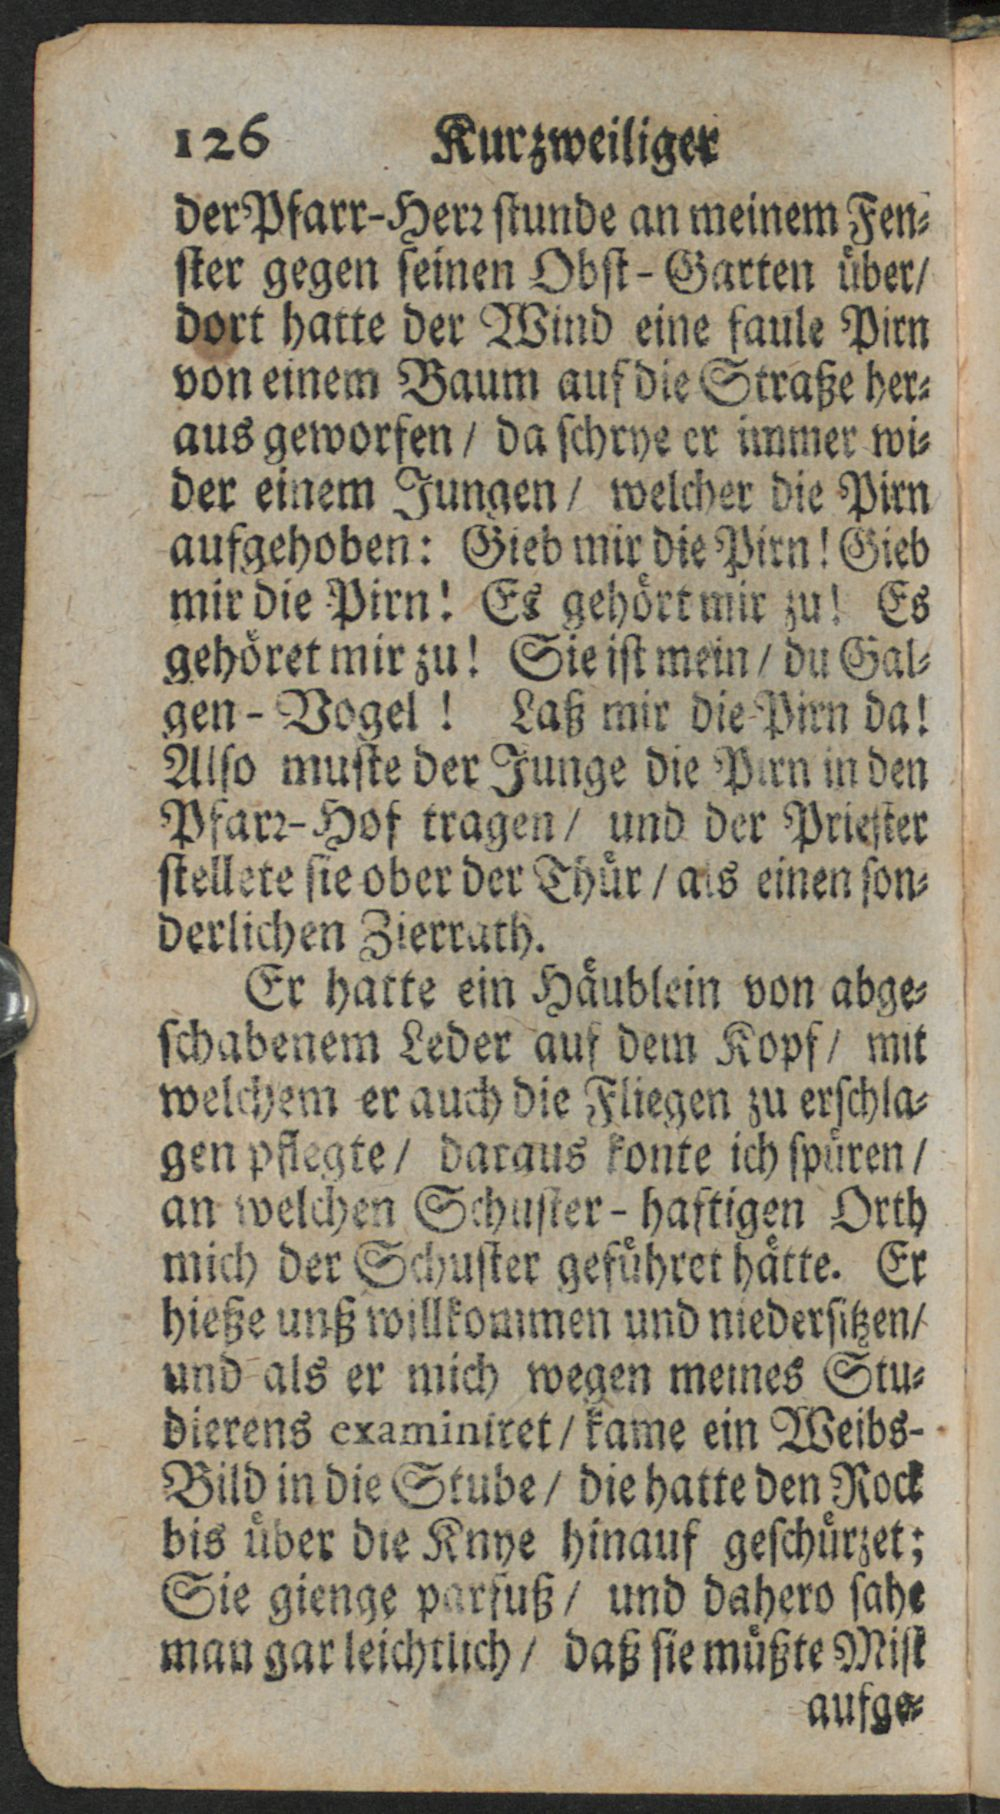 126 Kurzweiliger
der Pfarr-Herr stunde an meinem Fen-
ster gegen seinen Obst-Garten über/
dort hatte der Wind eine faule Pirn
von einem Baum auf die Straße her-
aus geworfen / da schrye er immer wi-
der einem Jungen / welcher die Pirn
aufgehoben: Gieb mir die Pirn! Gieb
mir die Pirn! Es gehört mir zu! Es
gehöret mir zu! Sie ist mein / du Gal-
gen-Vogel! Laß mir die Pirn da!
Also muste der Junge die Pirn in den
Pfarr-Hof tragen / und der Priester
stellete sie ober der Thür / als einen son-
derlichen Zierrath.
Er hatte ein Häublein von abge-
schabenem Leder auf dem Kopf / mit
welchem er auch die Fliegen zu erschla-
gen pflegte / daraus konte ich spüren /
an welchen Schuster-haftigen Orth
mich der Schuster geführet hätte. Er
hieße unß willkommen und niedersitzen/
und als er mich wegen meines Stu-
dierens examiniret / kame ein Weibs-
Bild in die Stube / die hatte den Rock
bis über die Knye hinauf geschürzet;
Sie gienge parfuß / und dahero sahe
man gar leichtlich / daß sie müßte Mist
aufge-